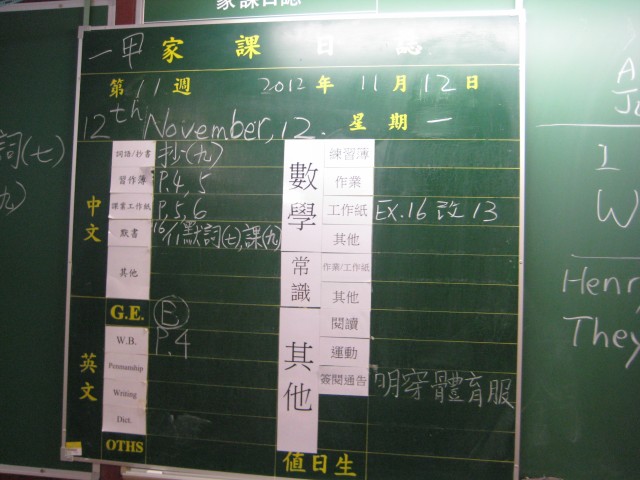 家課日誌
一甲 家課日誌
第 11 週 2012 年 11 月 12 日
12th November, 12. 星期 一
中文
詞語/抄書 抄(九)
習作簿 P.4, 5
課業工作紙 P.5, 6
默書 16/11默詞(七),課(九)
其他
英文
G.E. E
W.B. P.4
Penmanship
Writing
Dict.
OTHS
數學
練習簿
作業
工作紙 EX.16 改 13
其他
常識
作業/工作紙
其他
其他
閱讀
運動
簽閱通告 明穿體育服
值日生
詞(七)
九)
A
I
W
Henr
They